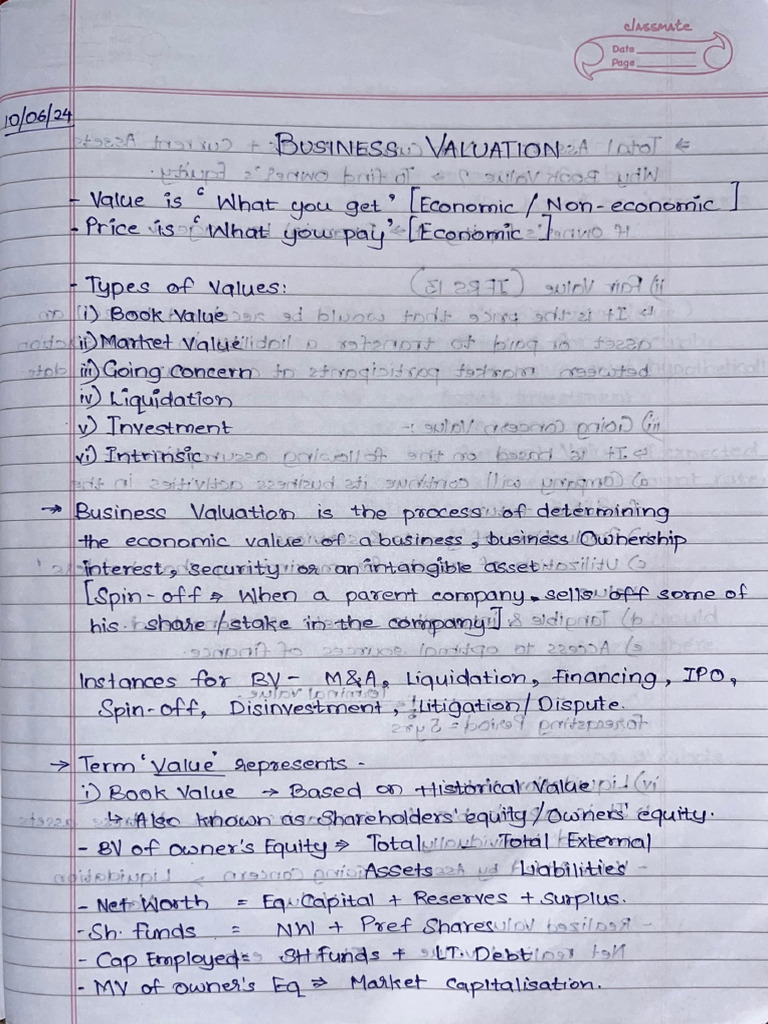 classmate
Date
Page
10/06/24
BUSINESS VALUATION
- Value is 'What you get' [Economic / Non-economic]
- Price is 'What you pay' [Economic]
- Types of Values:
i) Book Value
ii) Market Value
iii) Going concern
iv) Liquidation
v) Investment
vi) Intrinsic
→ Business Valuation is the process of determining
the economic value of a business, business Ownership
interest, security or an intangible asset
[Spin-off ⇒ When a parent company sells off some of
his share/stake in the company]
Instances for BV - M&A, Liquidation, Financing, IPO,
Spin-off, Disinvestment, Litigation/Dispute.
→ Term 'Value' represents -
i) Book Value → Based on Historical Value
↳ Also known as Shareholders' equity/Owners' equity.
- BV of Owner's Equity ⇒ Total - Total External
Assets Liabilities
- Net Worth = Eq Capital + Reserves + Surplus.
- Sh. funds = NW + Pref Shares
- Cap Employed = SH Funds + LT. Debt
- MV of Owner's Eq ⇒ Market Capitalisation.